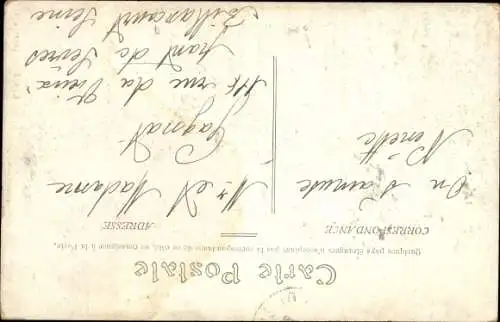 Carte Postale
Quelques pays étrangers n'acceptent pas la correspondance de ce côté, se renseigner à la Poste.
CORRESPONDANCE
ADRESSE
Ninette
Mr et Madame
Gagnat
114 rue du Vieux
pont de Sèvres
Billancourt Seine